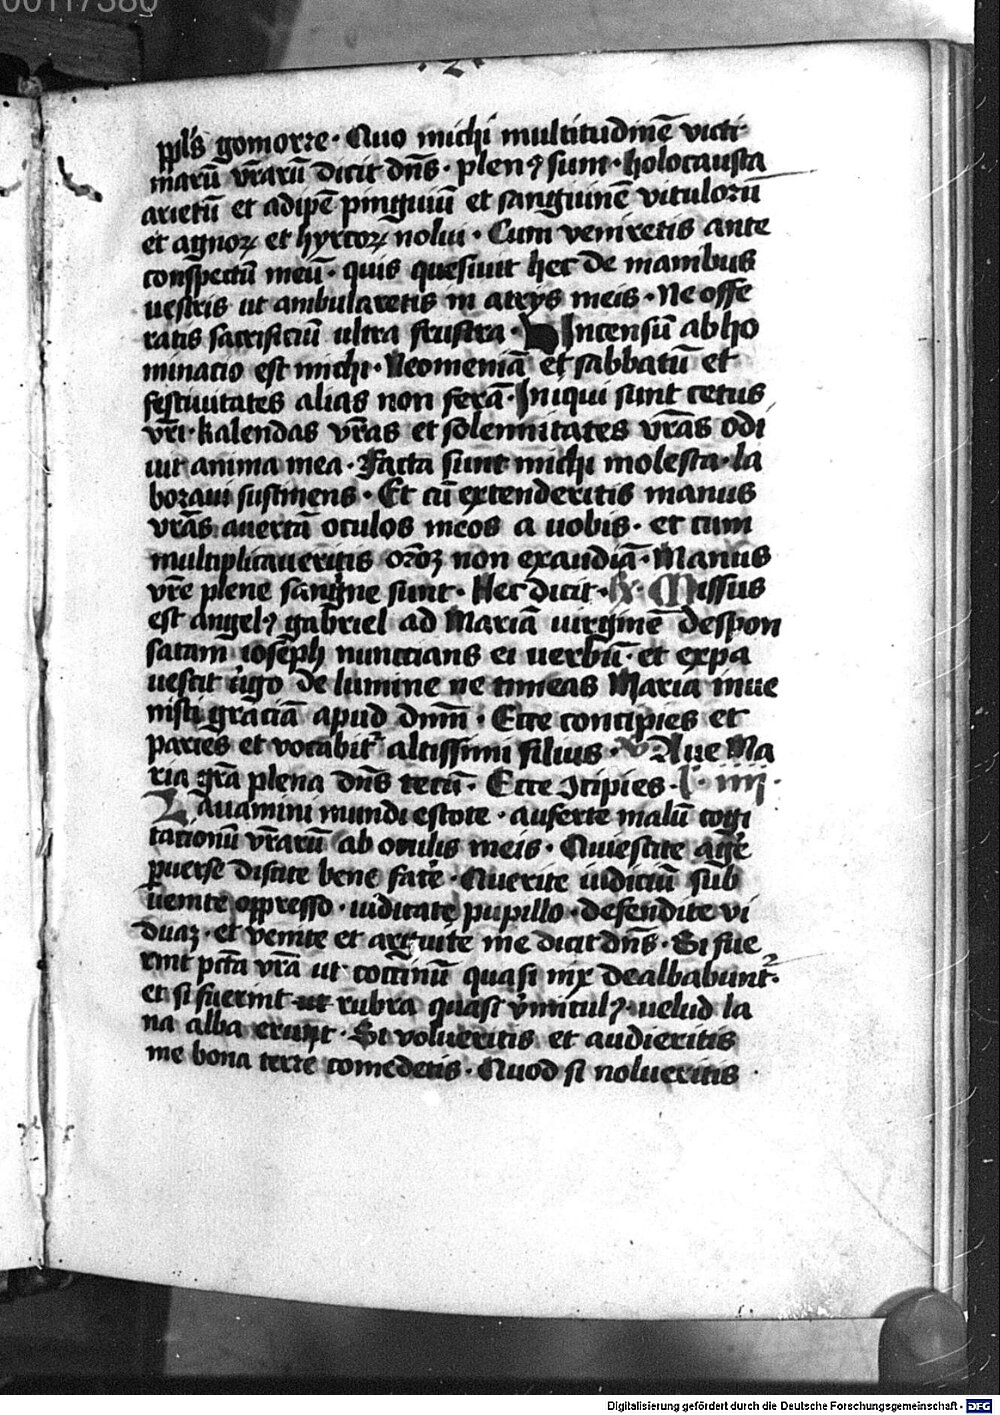 00117380
· 2 ·
ppl's gomorre · Quo michi multitudinē victi
marū vr̄arū dicit dn̄s · plenꝰ sum · holocausta
arietū et adipē pinguiū et sanguinē vitulorū
et agnoꝝ et hyrcoꝝ nolui · Cum veniretis ante
conspectū meū · quis quesiuit hec de manibus
vestris ut ambularetis in atrijs meis · Ne offe
ratis sacrificiū ultra frustra · Incensū abho
minacio est michi · Neomeniā et sabbatū et
festiuitates alias non ferā · Iniqui sunt cetus
vr̄i · kalendas vr̄as et solennitates vr̄as odi
uit anima mea · Facta sunt michi molesta · la
boraui sustinens · Et cū extenderitis manus
vr̄as auertā oculos meos a uobis · et cum
multiplicaueritis or̄oꝫ non exaudiā · Manus
vr̄e plene sangīne sunt · Hec dicit · ℟ · Missus
est angelꝰ gabriel ad Mariā uirginē despon
satam̄ ioseph nunccians ei uerbū · et expa
uescit uͥgo de lumine ne timeas Maria inue
nisti gr̄aciā apud dn̄m · Ecce concipies et
paries et vocabitᷣ altissimi filius · ℣ Aue Ma
ria gr̄a plena dn̄s tecū · Ecce ꝯcipies · l' · iiij ·
Lauamini mundi estote · auferte malū cogi
tacionū vr̄arū ab oculis meis · Quiescite ag̾e
ꝑuerse discite bene fac̾e · Querite iudiciū sub
uenite oppresso · iudicate pupillo · defendite vi
duaꝫ · et venite et arguite me dicit dn̄s · Si fue
rint pct̄a vr̄a ut coccinū quasi nix dealbabuntᷣ ·
et si fuerint ut rubra quasi v̾miculꝰ · uelud la
na alba erunt · Si volueritis et audieritis
me bona terre comedetis · Quod si nolueritis
Digitalisierung gefördert durch die Deutsche Forschungsgemeinschaft - DFG